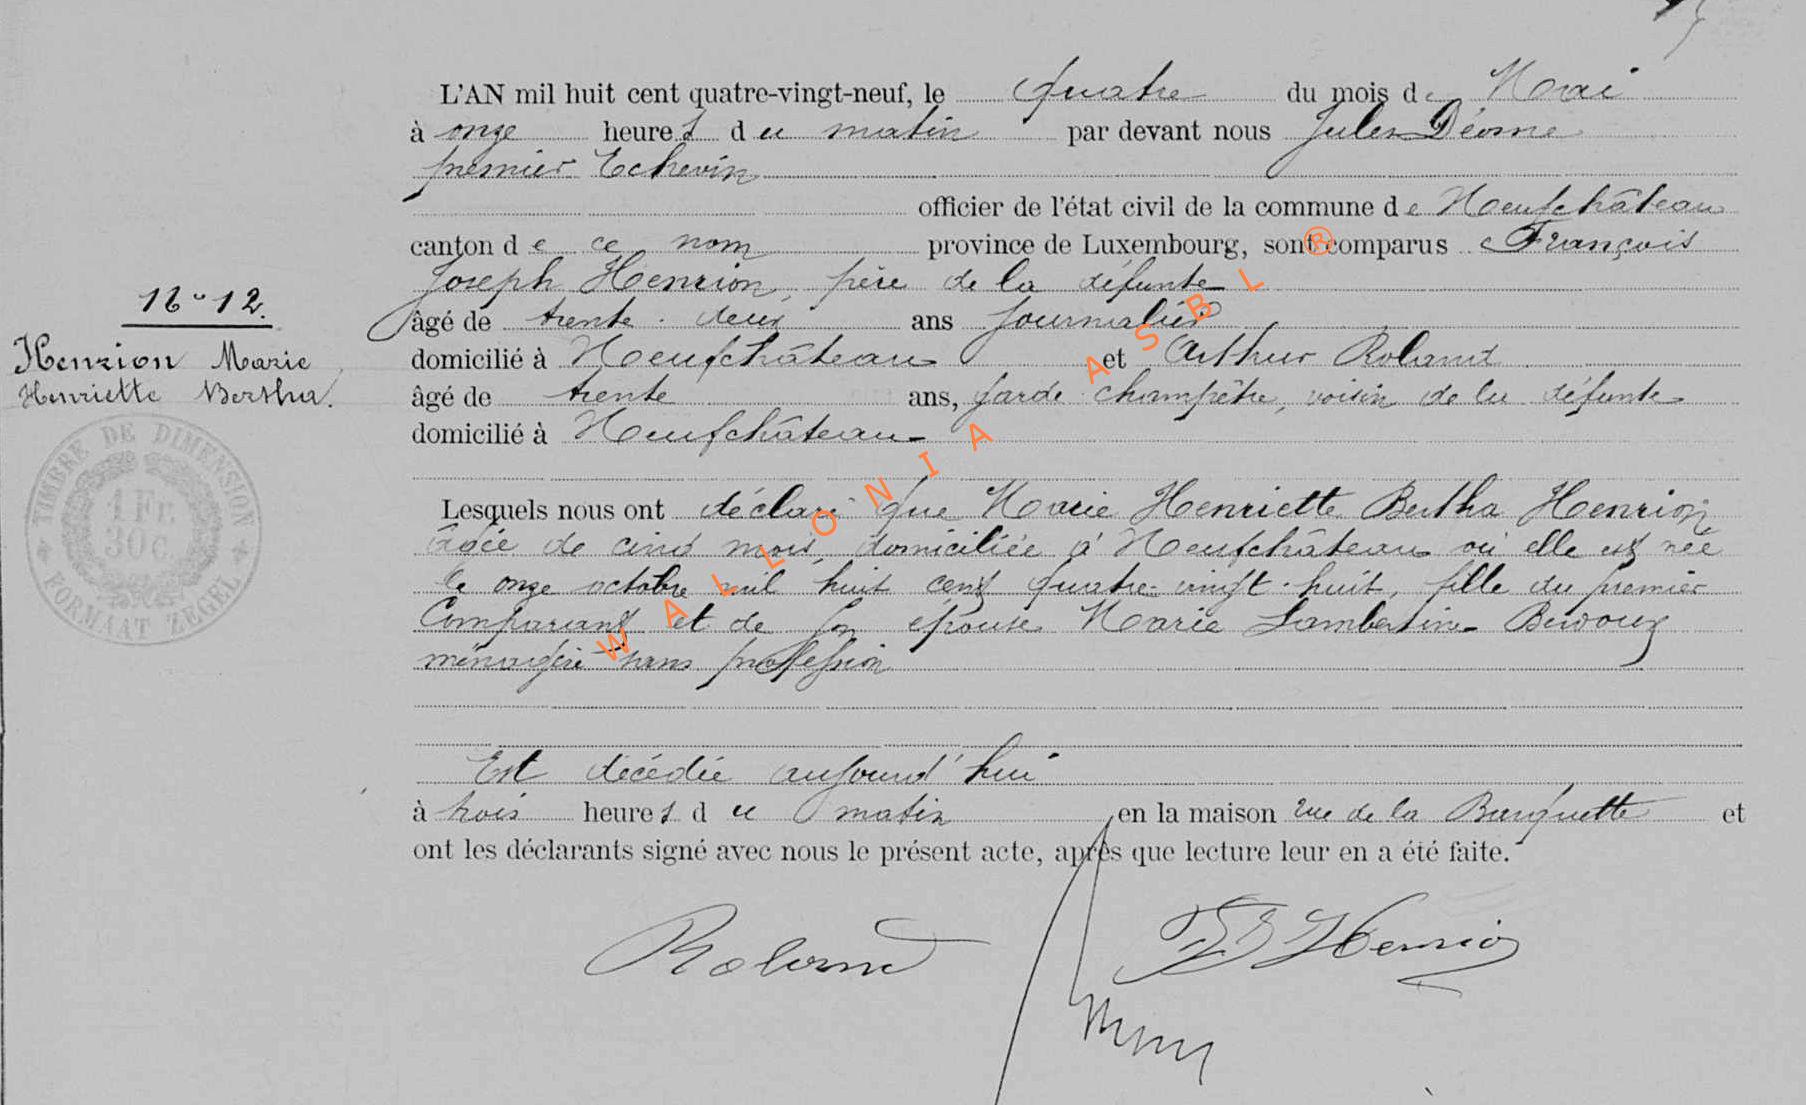 L'AN mil huit cent quatre-vingt-neuf, le quatre du mois de Mai
à onze heures du matin par devant nous Jules
premier Echevin
officier de l'état civil de la commune de Neufchâteau
canton de ce nom province de Luxembourg, sont comparus François
Joseph Henrion, père de la défunte
âgé de trente-deux ans journalier
domicilié à Neufchâteau et Arthur Roland
âgé de trente ans, garde champêtre, voisin de la défunte
domicilié à Neufchâteau
N° 12.
Henrion Marie
Henriette Bertha.
TIMBRE DE DIMENSION
1 Fr.
30 c.
FORMAAT ZEGEL
Lesquels nous ont déclaré que Marie Henriette Bertha Henrion
âgée de cinq mois, domiciliée à Neufchâteau où elle est née
le onze octobre mil huit cent quatre-vingt-huit, fille du premier
Comparant et de son épouse Marie Lambertine
ménagère sans profession
Est décédée aujourd'hui
à trois heures du matin en la maison rue de la Burquette et
ont les déclarants signé avec nous le présent acte, après que lecture leur en a été faite.
Roland FJ Henrion
WALLONIA ASBL ®